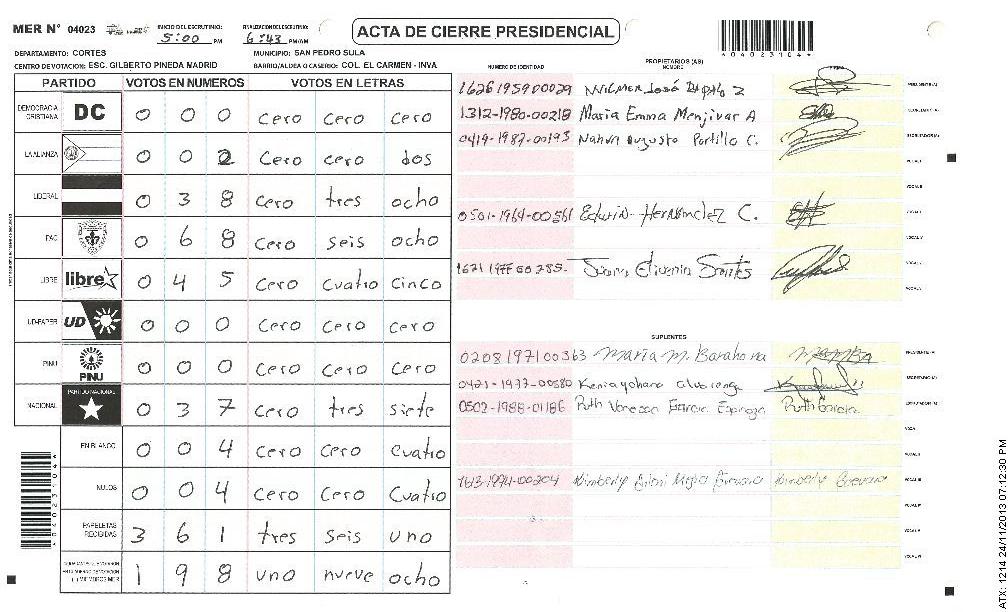 MER N° 04023 INICIO DEL ESCRUTINIO: 5:00 PM FINALIZACION DEL ESCRUTINIO: 6:43 PM/AM
ACTA DE CIERRE PRESIDENCIAL
*04023104*
DEPARTAMENTO: CORTES MUNICIPIO: SAN PEDRO SULA
CENTRO DE VOTACION: ESC. GILBERTO PINEDA MADRID BARRIO/ALDEA O CASERIO: COL. EL CARMEN - INVA
PARTIDO VOTOS EN NUMEROS VOTOS EN LETRAS
DEMOCRACIA CRISTIANA DC 0 0 0 cero cero cero
LA ALIANZA 0 0 2 cero cero dos
LIBERAL 0 3 8 cero tres ocho
PAC 0 6 8 cero seis ocho
LIBRE libre 0 4 5 cero cuatro cinco
UD-FAPER UD 0 0 0 cero cero cero
PINU PINU 0 0 0 cero cero cero
NACIONAL PARTIDO NACIONAL 0 3 7 cero tres siete
EN BLANCO 0 0 4 cero cero cuatro
NULOS 0 0 4 cero cero cuatro
PAPELETAS RECIBIDAS 3 6 1 tres seis uno
1 9 8 uno nueve ocho
NUMERO DE IDENTIDAD PROPIETARIOS (AS) NOMBRE FIRMA
1626195900029 José PRESIDENTE(A)
1312-1980-00218 Maria Emma Menjivar A SECRETARIO(A)
0419-1987-00193 Nahun Augusto Portillo C. ESCRUTADOR(A)
VOCAL I
VOCAL II
0501-1964-00561 Edwin Hernandez C. VOCAL III
VOCAL IV
VOCAL V
VOCAL VI
SUPLENTES
0208197100363 Maria M. Barahona PRESIDENTE(A)
0421-1977-00580 Keniayohana alvarenga SECRETARIO(A)
0502-1988-01186 Ruth Vanessa Garcia Espinoza Ruth Garcia ESCRUTADOR(A)
VOCAL I
VOCAL II
1613-1994-00204 Kimberly Guevara Kimberly Guevara VOCAL III
VOCAL IV
VOCAL V
VOCAL VI
*04023104*
ATX: 1214 24/11/2013 07:12:30 PM